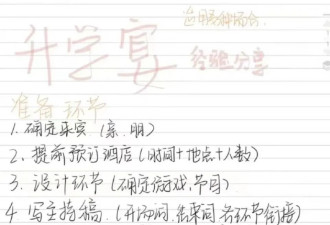 升学宴
经验分享
准备环节
1. 确定来宾(亲.朋)
2、提前预订酒店(时间+地点+人数)
3. 设计环节(确定游戏.节目)
4 写主持稿.(开场词.结束词.各环节衔接)